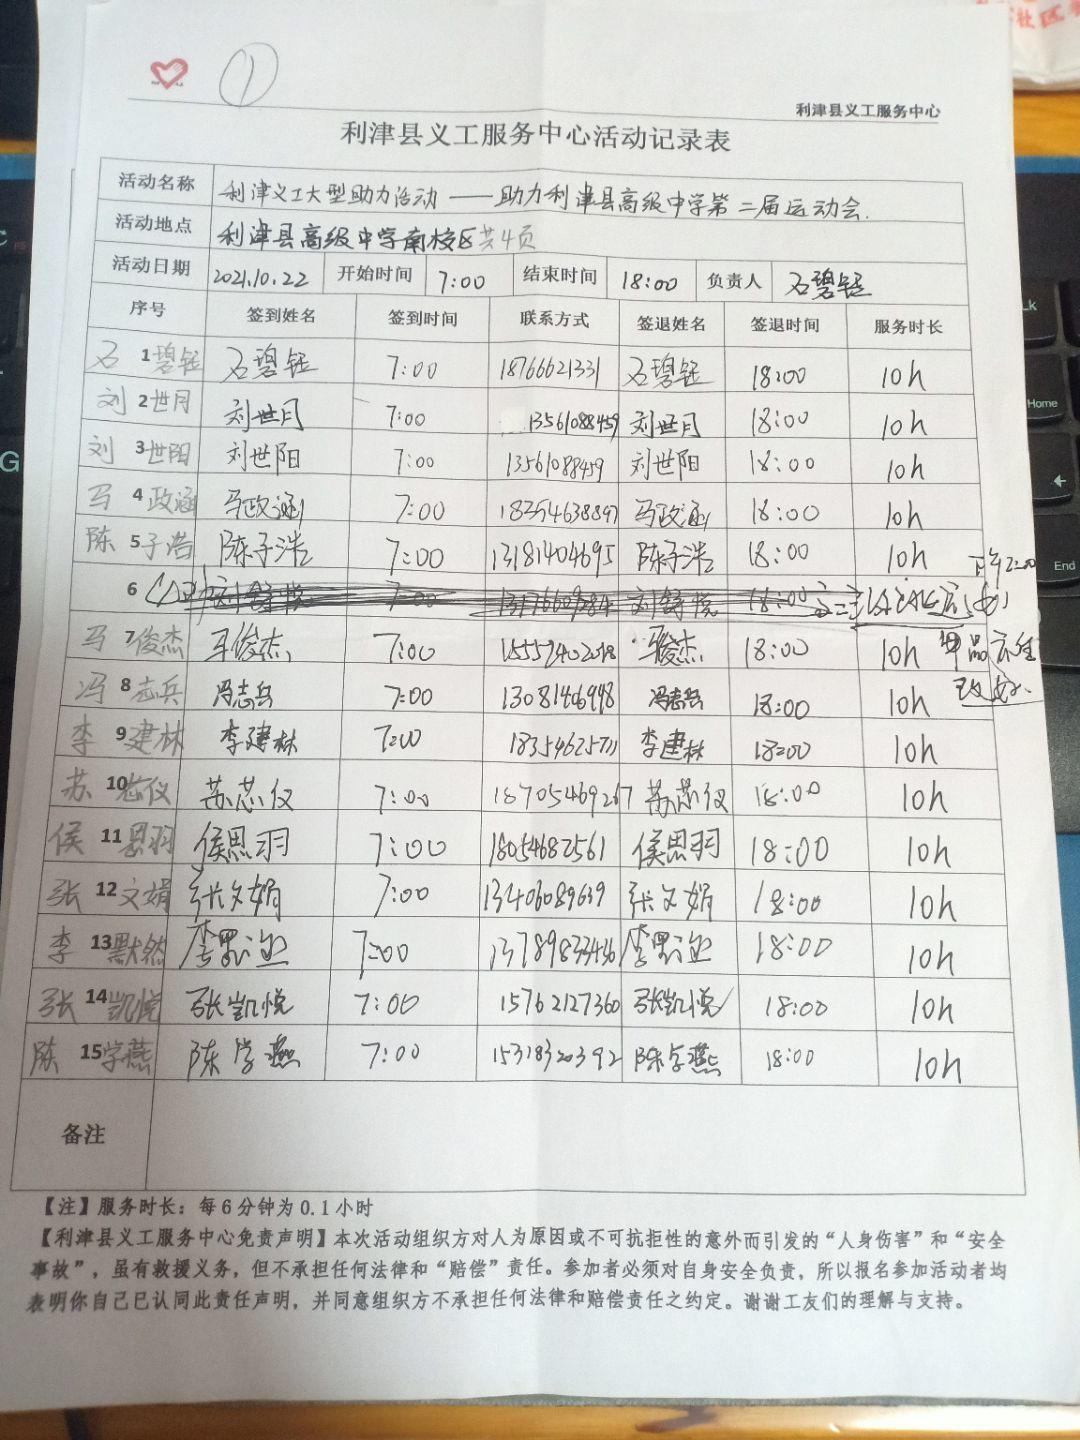 ①
利津县义工服务中心
利津县义工服务中心活动记录表
活动名称 利津义工大型助力活动——助力利津县高级中学第二届运动会.
活动地点 利津县高级中学南校区 共4页
活动日期 2021.10.22 开始时间 7:00 结束时间 18:00 负责人 石碧钰
序号 签到姓名 签到时间 联系方式 签退姓名 签退时间 服务时长
石碧钰 1 石碧钰 7:00 18766621331 石碧钰 18:00 10h
刘世月 2 刘世月 7:00 13561088459 刘世月 18:00 10h
刘世阳 3 刘世阳 7:00 13561088459 刘世阳 18:00 10h
马政涵 4 马政涵 7:00 18254638897 马政涵 18:00 10h
陈子浩 5 陈子浩 7:00 13181404695 陈子浩 18:00 10h
6 7:00 18:00
马俊杰 7 马俊杰 7:00 15552402018 马俊杰 18:00 10h
冯志兵 8 冯志兵 7:00 13081406948 冯志兵 18:00 10h
李建林 9 李建林 7:00 18354625711 李建林 18:00 10h
苏芯仪 10 苏芯仪 7:00 18705469267 苏芯仪 18:00 10h
侯思羽 11 侯思羽 7:00 18054682561 侯思羽 18:00 10h
张文娟 12 张文娟 7:00 13406089639 张文娟 18:00 10h
李默然 13 李默然 7:00 李默然 18:00 10h
张凯悦 14 张凯悦 7:00 15762127360 张凯悦 18:00 10h
陈学燕 15 陈学燕 7:00 15318320392 陈学燕 18:00 10h
备注
【注】服务时长：每6分钟为0.1小时
【利津县义工服务中心免责声明】本次活动组织方对人为原因或不可抗拒性的意外而引发的“人身伤害”和“安全
事故”，虽有救援义务，但不承担任何法律和“赔偿”责任。参加者必须对自身安全负责，所以报名参加活动者均
表明你自己已认同此责任声明，并同意组织方不承担任何法律和赔偿责任之约定。谢谢工友们的理解与支持。
Home
End